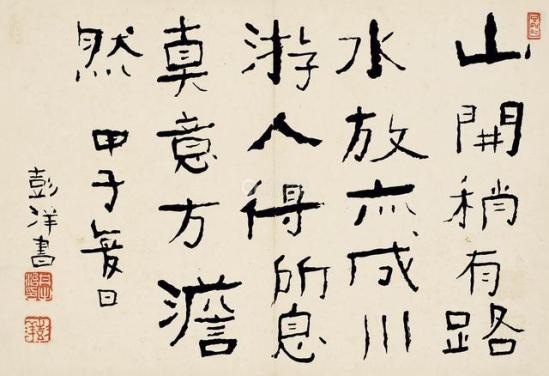 山開稍有路
水放亦成川
游人得所息
真意方澹
然 甲子夏日
彭洋書